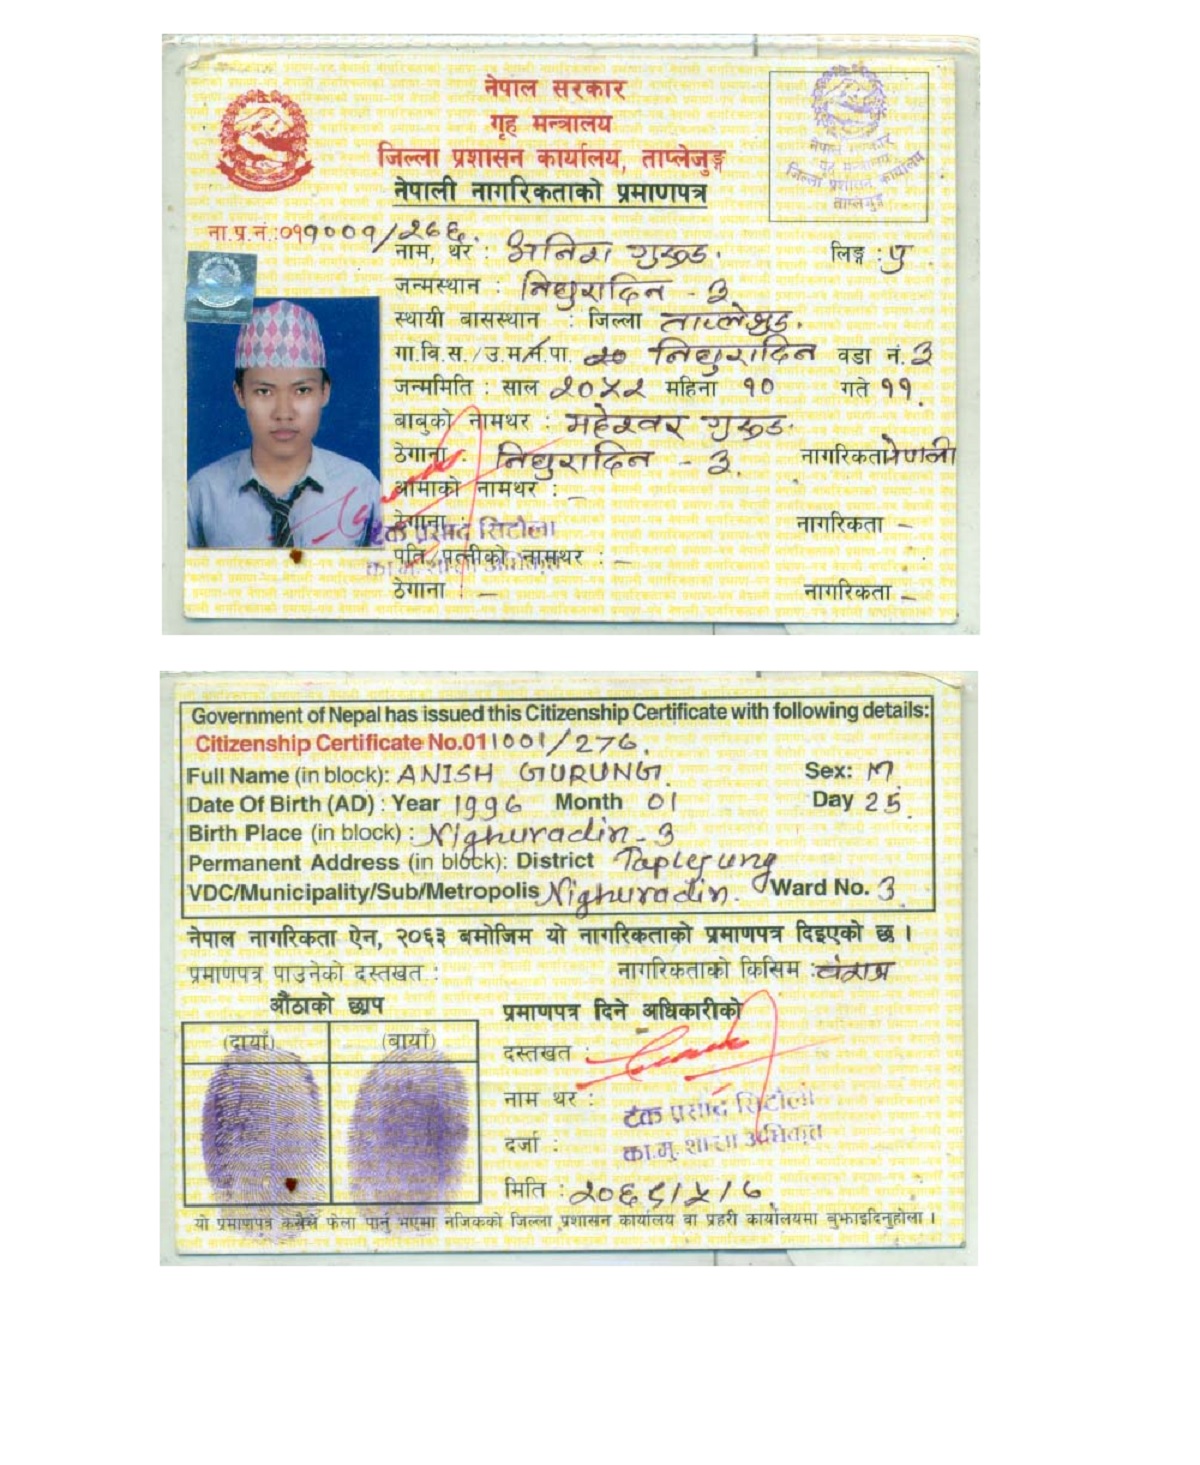 नेपाल सरकार
गृह मन्त्रालय
जिल्ला प्रशासन कार्यालय, ताप्लेजुङ्ग
नेपाली नागरिकताको प्रमाणपत्र
नेपाल सरकार
गृह मन्त्रालय
जिल्ला प्रशासन कार्यालय
ताप्लेजुङ्ग
ना.प्र.नं.:०११००१/२७६.
नाम, थर : अनिश गुरुङ. लिङ्ग : पु
जन्मस्थान : निघुरादिन - ३
स्थायी बासस्थान : जिल्ला ताप्लेजुङ.
गा.वि.स./उ.म/म.पा. निघुरादिन वडा नं. ३
जन्ममिति : साल २०५२ महिना १० गते ११.
बाबुको नामथर : महेश्वर गुरुङ.
ठेगाना : निघुरादिन - ३. नागरिकता नेपाली
आमाको नामथर : -
ठेगाना : नागरिकता -
टंक प्रसाद सिटौला
पति/पत्नीको नामथर : -
का.मु. शाखा अधिकृत
ठेगाना : - नागरिकता -
Government of Nepal has issued this Citizenship Certificate with following details:
Citizenship Certificate No.011001/276.
Full Name (in block): ANISH GURUNG. Sex: M
Date Of Birth (AD) : Year 1996 Month 01 Day 25
Birth Place (in block) : Nighuradin - 3
Permanent Address (in block): District Taplejung
VDC/Municipality/Sub/Metropolis Nighuradin. Ward No. 3
नेपाल नागरिकता ऐन, २०६३ बमोजिम यो नागरिकताको प्रमाणपत्र दिइएको छ ।
प्रमाणपत्र पाउनेको दस्तखत : नागरिकताको किसिम : वंशज
औंठाको छाप प्रमाणपत्र दिने अधिकारीको
(दायाँ) (बायाँ)
दस्तखत :
नाम थर : टंक प्रसाद सिटौला
दर्जा : का.मु. शाखा अधिकृत
मिति :
यो प्रमाणपत्र कसैले फेला पार्नु भएमा नजिकको जिल्ला प्रशासन कार्यालय वा प्रहरी कार्यालयमा बुझाइदिनुहोला ।